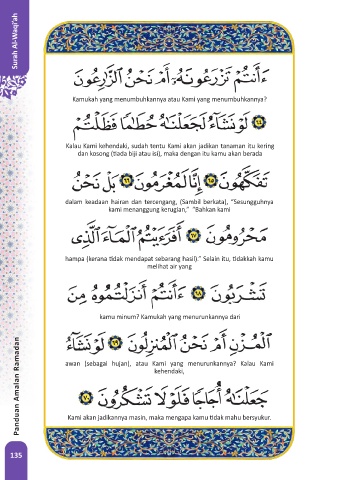 Surah Al-Waqi'ah
ءَأَنتُمْ تَزْرَعُونَهُۥٓ أَمْ نَحْنُ ٱلزَّٰرِعُونَ
Kamukah yang menumbuhkannya atau Kami yang menumbuhkannya?
٦٤ لَوْ نَشَآءُ لَجَعَلْنَٰهُ حُطَٰمًا فَظَلْتُمْ
Kalau Kami kehendaki, sudah tentu Kami akan jadikan tanaman itu kering
dan kosong (tiada biji atau isi), maka dengan itu kamu akan berada
تَفَكَّهُونَ ٦٥ إِنَّا لَمُغْرَمُونَ ٦٦ بَلْ نَحْنُ
dalam keadaan hairan dan tercengang, (Sambil berkata), "Sesungguhnya
kami menanggung kerugian," "Bahkan kami
مَحْرُومُونَ ٦٧ أَفَرَءَيْتُمُ ٱلْمَآءَ ٱلَّذِى
hampa (kerana tidak mendapat sebarang hasil)." Selain itu, tidakkah kamu
melihat air yang
تَشْرَبُونَ ٦٨ ءَأَنتُمْ أَنزَلْتُمُوهُ مِنَ
kamu minum? Kamukah yang menurunkannya dari
ٱلْمُزْنِ أَمْ نَحْنُ ٱلْمُنزِلُونَ ٦٩ لَوْ نَشَآءُ
awan (sebagai hujan), atau Kami yang menurunkannya? Kalau Kami
kehendaki,
جَعَلْنَٰهُ أُجَاجًا فَلَوْلَا تَشْكُرُونَ ٧٠
Kami akan jadikannya masin, maka mengapa kamu tidak mahu bersyukur.
Panduan Amalan Ramadan
135